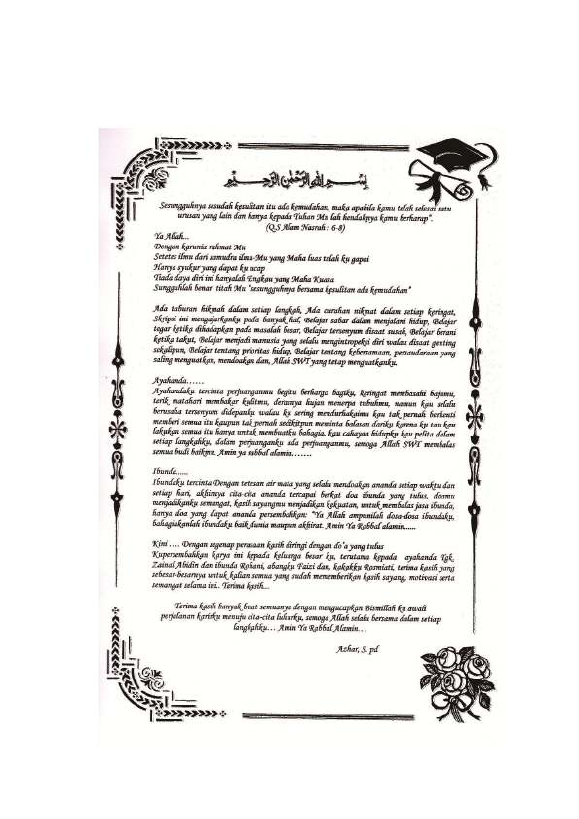 بِسْــمِ اللهِ الرَّحْمٰنِ الرَّحِيْــمِ
Sesungguhnya sesudah kesulitan itu ada kemudahan, maka apabila kamu telah selesai satu
urusan yang lain dan hanya kepada Tuhan Mu lah hendaknya kamu berharap".
(Q.S Alam Nasrah : 6-8)
Ya Allah...
Dengan karunia rahmat Mu
Setetes ilmu dari samudra ilmu-Mu yang Maha luas telah ku gapai
Hanya syukur yang dapat ku ucap
Tiada daya diri ini hanyalah Engkau yang Maha Kuasa
Sungguhlah benar titah Mu "sesungguhnya bersama kesulitan ada kemudahan"
Ada taburan hikmah dalam setiap langkah, Ada curahan nikmat dalam setiap keringat,
Skripsi ini mengajarkanku pada banyak hal, Belajar sabar dalam menjalani hidup, Belajar
tegar ketika dihadapkan pada masalah besar, Belajar tersenyum disaat susah, Belajar berani
ketika takut, Belajar menjadi manusia yang selalu mengintropeksi diri walau disaat genting
sekalipun, Belajar tentang prioritas hidup, Belajar tentang kebersamaan, persaudaraan yang
saling menguatkan, mendoakan dan, Allah SWT yang tetap menguatkanku.
Ayahanda......
Ayahandaku tercinta perjuanganmu begitu berharga bagiku, keringat membasahi bajumu,
terik matahari membakar kulitmu, derasnya hujan menerpa tubuhmu, namun kau selalu
berusaha tersenyum didepanku walau ku sering mendurhakaimu kau tak pernah berhenti
memberi semua itu kaupun tak pernah sedikitpun meminta balasan dariku karena ku tau kau
lakukan semua itu hanya untuk membuatku bahagia. kau cahaya hidupku kau pelita dalam
setiap langkahku, dalam perjuanganku ada perjuanganmu, semoga Allah SWT membalas
semua budi baikmu. Amin ya rabbal alamin.......
Ibunda......
Ibundaku tercinta Dengan tetesan air mata yang selalu mendoakan ananda setiap waktu dan
setiap hari, akhirnya cita-cita ananda tercapai berkat doa ibunda yang tulus. doamu
menjadikanku semangat, kasih sayangmu menjadikan kekuatan, untuk membalas jasa ibunda,
hanya doa yang dapat ananda persembahkan: "Ya Allah ampunilah dosa-dosa ibundaku,
bahagiakanlah ibundaku baik dunia maupun akhirat. Amin Ya Rabbal alamin......
Kini .... Dengan segenap perasaan kasih diringi dengan do'a yang tulus
Kupersembahkan karya ini kepada keluarga besar ku, terutama kepada ayahanda Tgk.
Zainal Abidin dan ibunda Rohani, abangku Faizi dan, kakakku Rosmiati, terima kasih yang
sebesar-besarnya untuk kalian semua yang sudah memeberikan kasih sayang, motivasi serta
semangat selama ini.. Terima kasih...
Terima kasih banyak buat semuanya dengan mengucapkan Bismillah ku awali
perjalanan karirku menuju cita-cita luhurku, semoga Allah selalu bersama dalam setiap
langkahku... Amin Ya Rabbal Alamin...
Azhar, S. pd